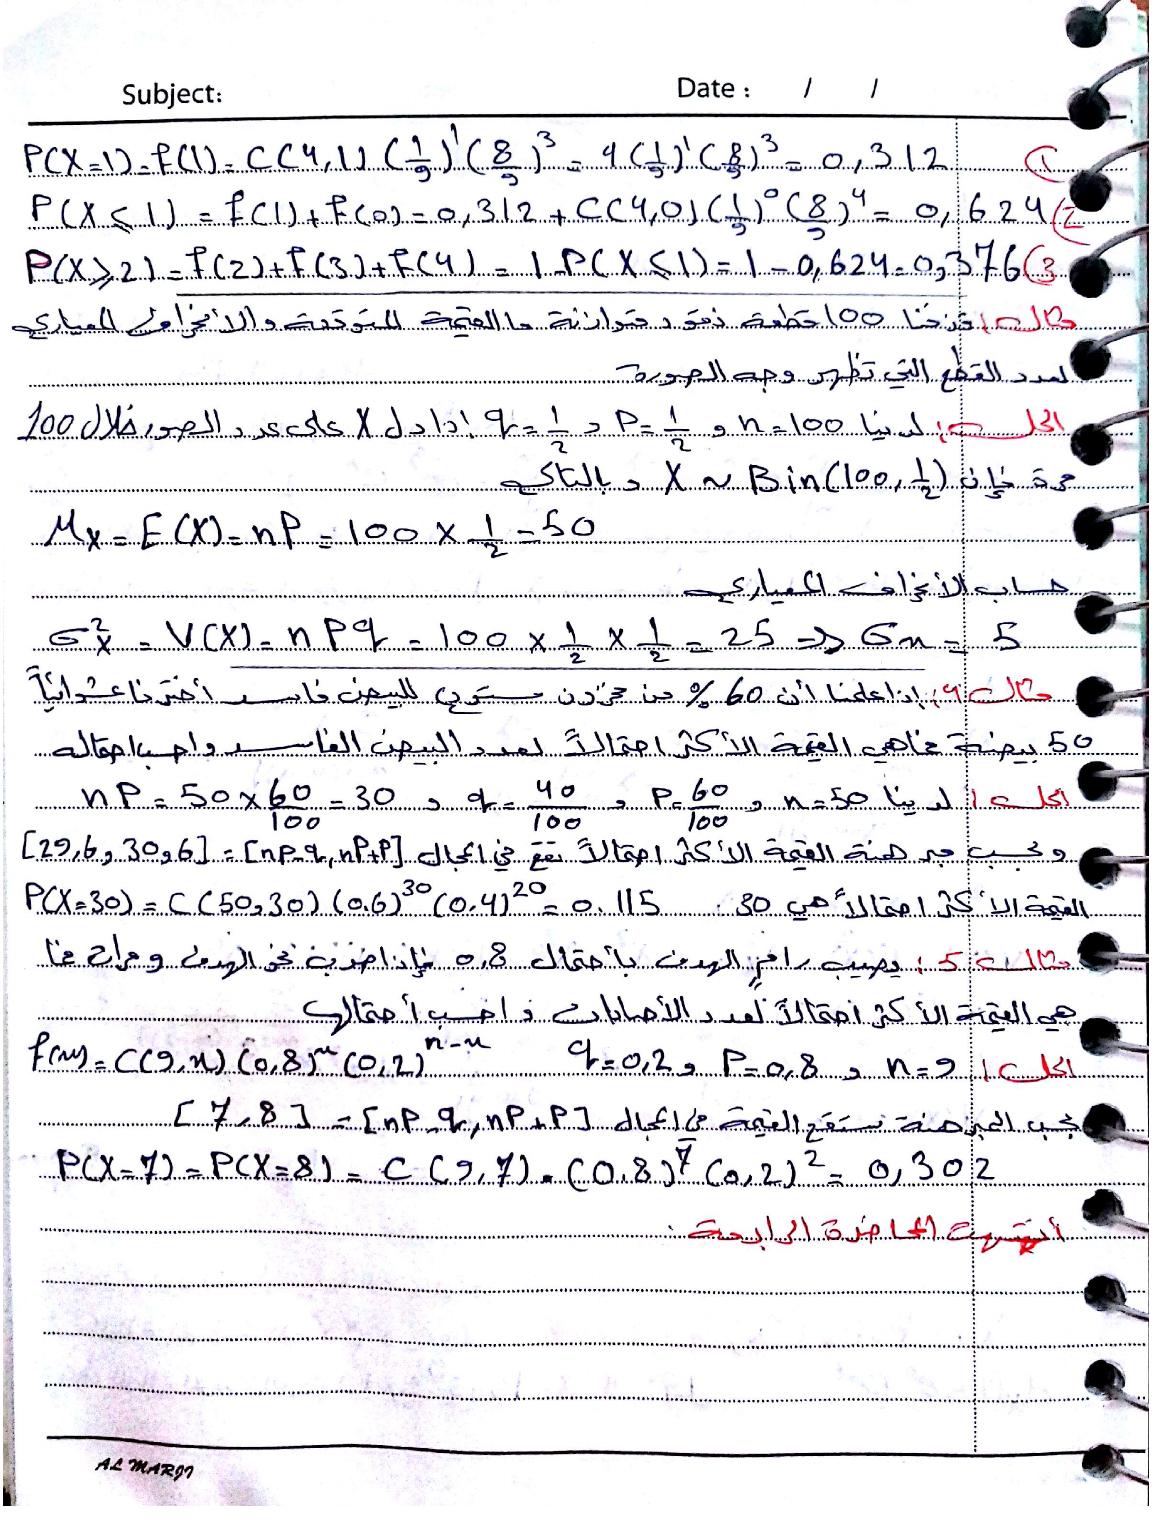 Subject: Date : / /
P(X=1)=f(1)=C(4,1)(1/9)^1(8/9)^3=4(1/9)^1(8/9)^3=0,312 (1
P(X≤1)=f(1)+f(0)=0,312+C(4,0)(1/9)^0(8/9)^4=0,624 (2
P(X≥2)=f(2)+f(3)+f(4)=1-P(X≤1)=1-0,624=0,376 (3
مثال: قذفنا 100 قطعة نقود متوازنة ما القيمة المتوقعة والانحراف المعياري
لعدد القطع التي تظهر وجه الصورة
الحل: لدينا n=100 و P=1/2 و q=1/2 إذا دل X على عدد الصور خلال 100
مرة فإن X ~ Bin(100,1/2) و بالتالي
Mx=E(X)=nP=100×1/2=50
حساب الأنحراف المعياري
σ²x=V(X)=nPq=100×1/2×1/2=25⇒σx=5
مثال 4: إذا علمنا أن 60% من مخزون مستودع للبيض فاسد أخترنا عشوائياً
50 بيضة ماهي القيمة الأكثر احتمالاً لعدد البيض الفاسد واحسب احتماله
الحل: لدينا n=50 و P=60/100 و q=40/100 و nP=50×60/100=30
وبحسب مبرهنة القيمة الأكثر احتمالاً تقع في المجال [29,6 , 30,6]=[nP-q,nP+P]
القيمة الأكثر احتمالاً هي 30 P(X=30)=C(50,30)(0.6)^30(0.4)^20=0.115
مثال 5: يصيب رامٍ الهدف بأحتمال 0,8 فإذا ضرب نحو الهدف ومرات ما
هي القيمة الأكثر احتمالاً لعدد الأصابات و احسب أحتمالها
الحل: n=9 و P=0,8 و q=0,2 f(x)=C(9,x)(0,8)^x(0,2)^n-x
بحسب المبرهنة ستقع القيمة في المجال [nP-q,nP+P]=[7,8]
P(X=7)=P(X=8)=C(9,7).(0.8)^7(0,2)^2=0,302
أنتهت المحاضرة الرابعة.
AL MARJI